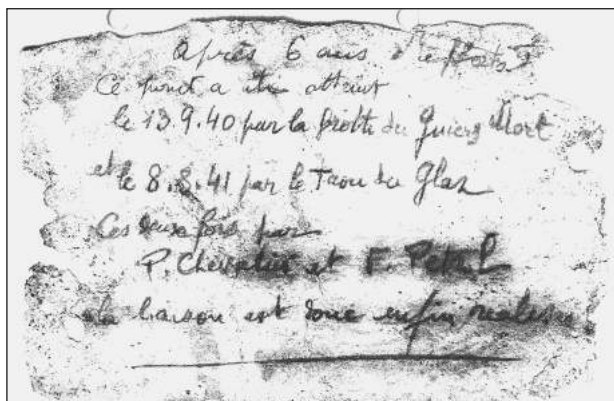 Après 6 ans d'efforts
Ce point a été atteint
le 13.9.40 par la grotte du Guiers Mort
et le 8.8.41 par le Trou du Glas
Ces deux fois par
P. Chevalier et F. Petzl
la liaison est donc enfin réalisée